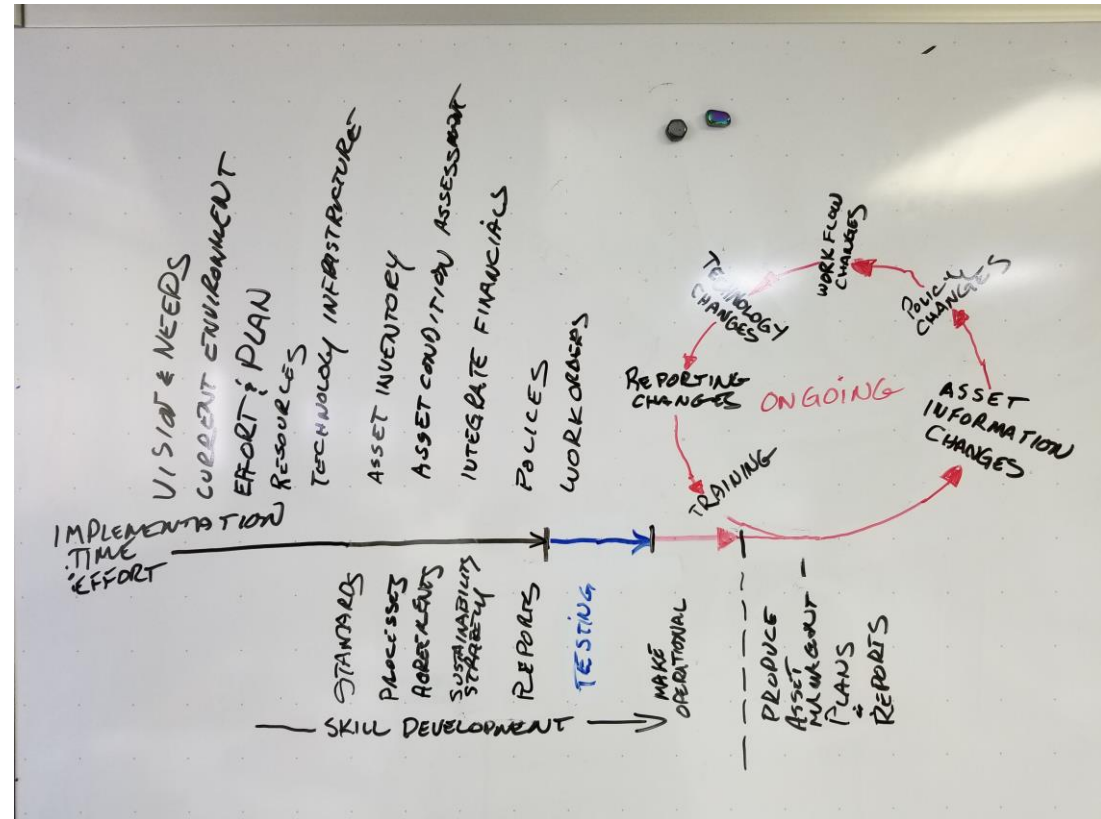 VISION & NEEDS
CURRENT ENVIRONMENT
EFFORT & PLAN
RESOURCES
TECHNOLOGY INFRASTRUCTURE
ASSET INVENTORY
ASSET CONDITION ASSESSMENT
INTEGRATE FINANCIALS
POLICES
WORK ORDERS
IMPLEMENTATION
TIME
& EFFORT
STANDARDS
PROCESSES
AGREEMENTS
SUSTAINABILITY
STRATEGY
REPORTS
TESTING
MAKE
OPERATIONAL
SKILL DEVELOPMENT
PRODUCE
ASSET
MANAGEMENT
PLANS
&
REPORTS
ONGOING
ASSET
INFORMATION
CHANGES
POLICY
CHANGES
WORKFLOW
CHANGES
TECHNOLOGY
CHANGES
REPORTING
CHANGES
TRAINING